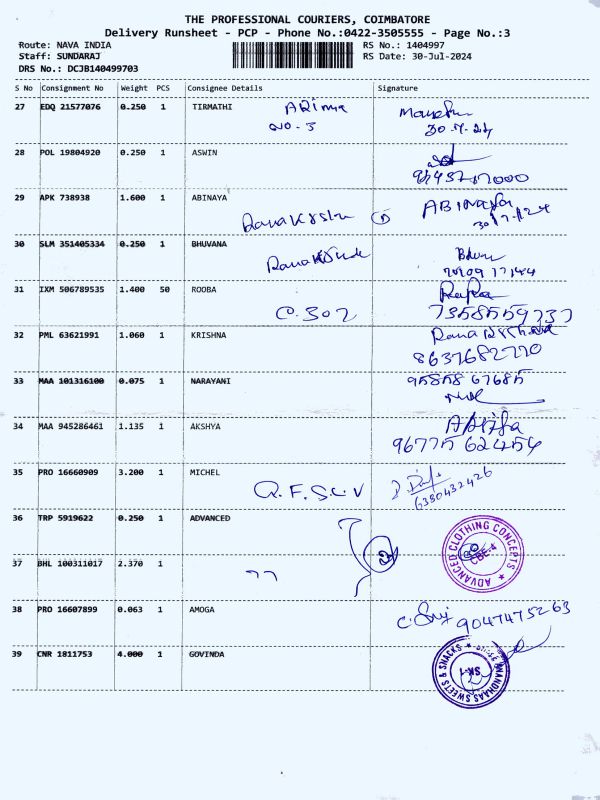 THE PROFESSIONAL COURIERS, COIMBATORE
Delivery Runsheet - PCP - Phone No.:0422-3505555 - Page No.:3
Route: NAVA INDIA RS No.: 1404997
Staff: SUNDARAJ RS Date: 30-Jul-2024
DRS No.: DCJB140499703
S No Consignment No Weight PCS Consignee Details Signature
27 EDQ 21577076 0.250 1 TIRMATHI
NO-3 30.7.24
28 POL 19804920 0.250 1 ASWIN
29 APK 738938 1.600 1 ABINAYA ABINAYA
30/7/24
30 SLM 351405334 0.250 1 BHUVANA
31 IXM 506789535 1.400 50 ROOBA
C.302 7358559737
32 PML 63621991 1.060 1 KRISHNA
8637682770
33 MAA 101316100 0.075 1 NARAYANI 95858 67685
34 MAA 945286461 1.135 1 AKSHYA
96775 62454
35 PRO 16660909 3.200 1 MICHEL
Q.F.S.C.V 6380432426
36 TRP 5919622 0.250 1 ADVANCED
ADVANCED CLOTHING CONCEPTS
CBE-4
37 BHL 100311017 2.370 1
38 PRO 16607899 0.063 1 AMOGA 9047475263
39 CNR 1811753 4.000 1 GOVINDA
ANANDHAAS SWEETS & SNACKS
SK-1